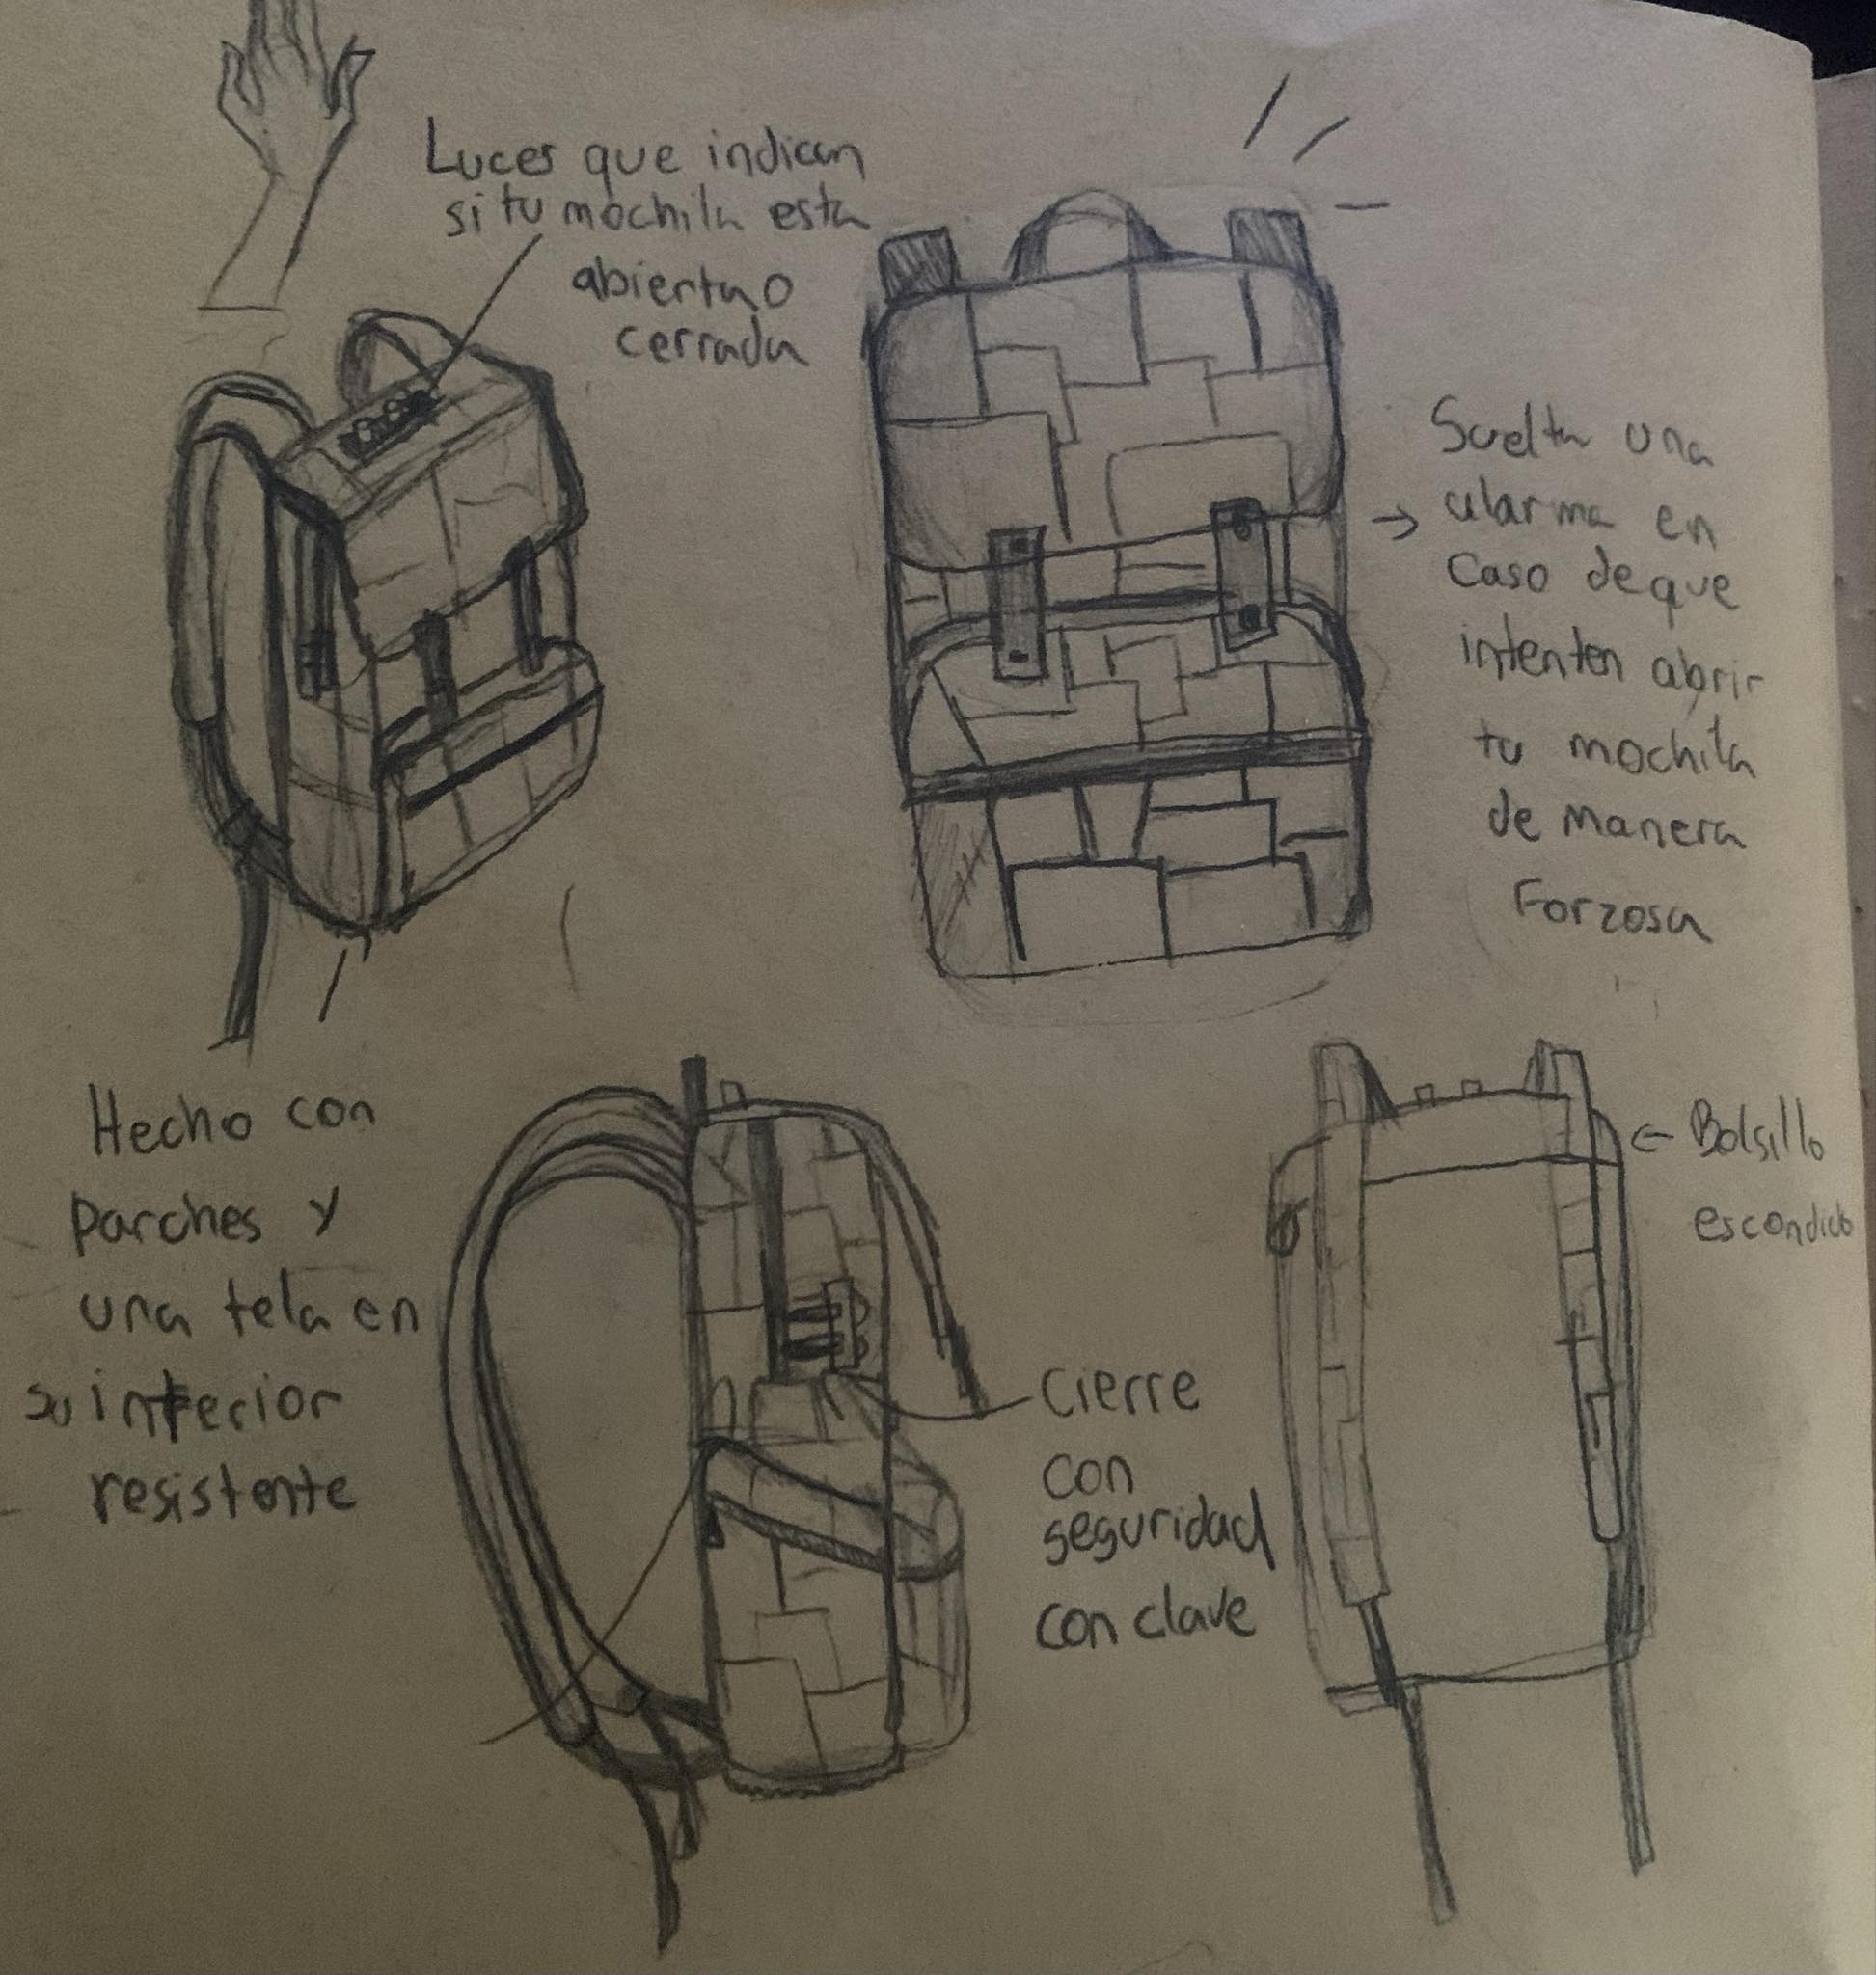 Luces que indican
si tu mochila esta
abierta o
cerrada
Suelta una
alarma en
caso de que
intenten abrir
tu mochila
de manera
Forzosa
Hecho con
parches y
una tela en
su interior
resistente
Cierre
con
seguridad
con clave
Bolsillo
escondido